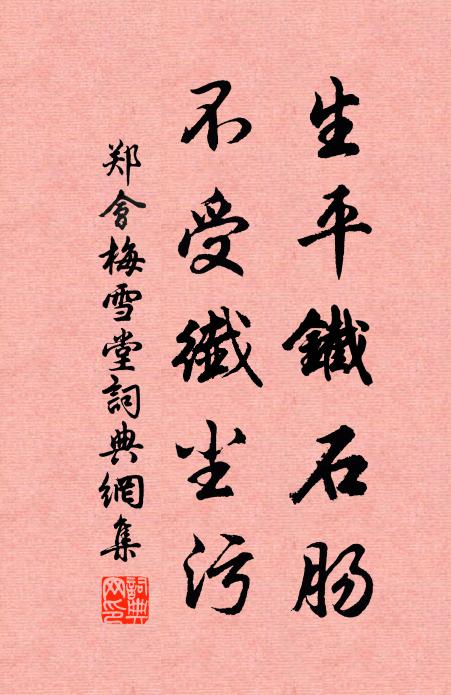 生平鐵石肠
不受纖尘污
郑會梅雪堂詞典網集
詞典网印